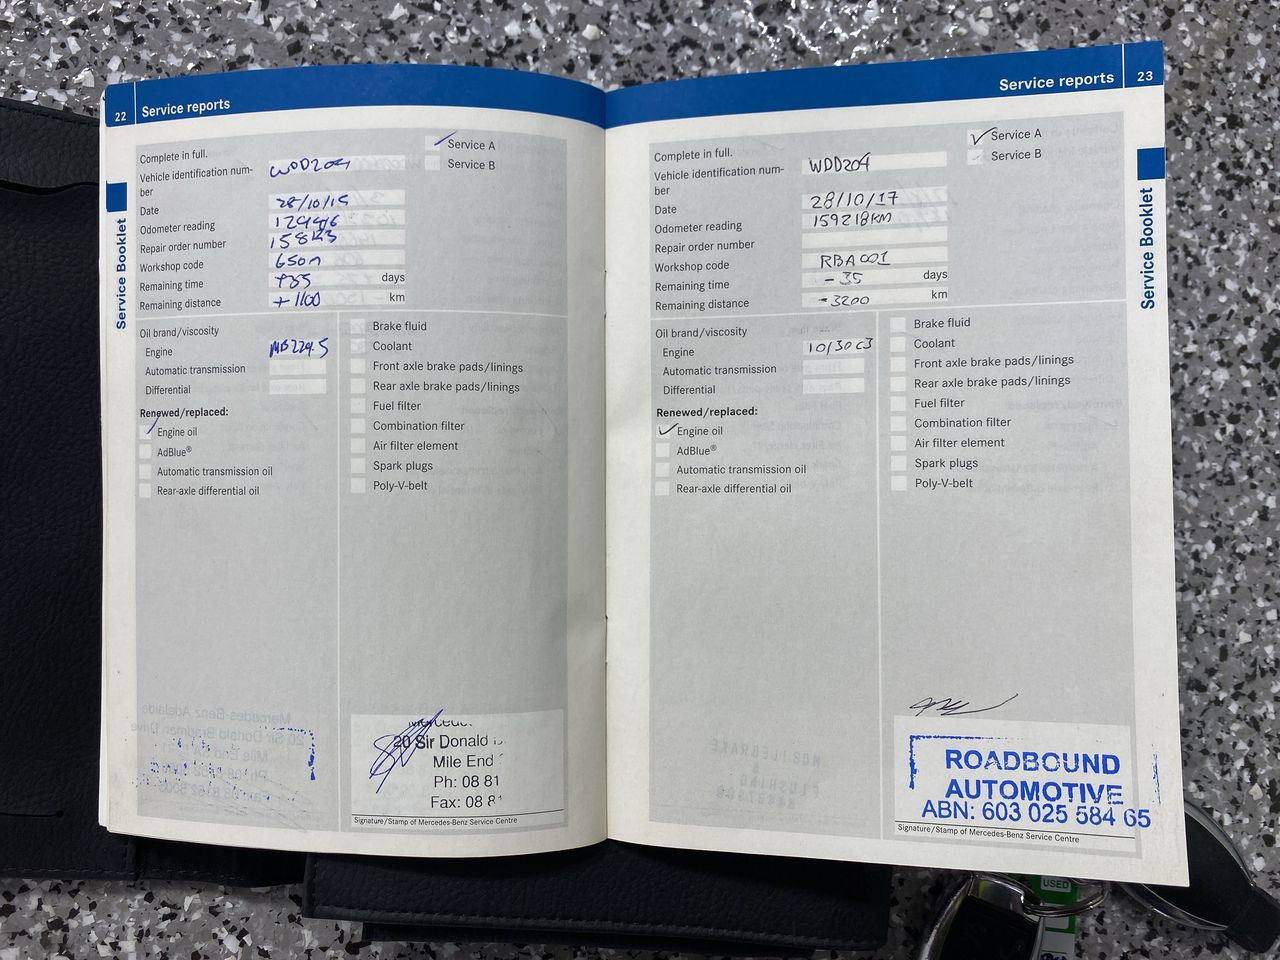 22 Service reports
Complete in full.
Service A
Service B
Vehicle identification num-
ber WDD204
Date 28/10/15
Odometer reading
Repair order number
Workshop code 650m
Remaining time days
Remaining distance + 1100 km
Oil brand/viscosity
Engine MB229.5
Automatic transmission
Differential
Renewed/replaced:
Engine oil
AdBlue®
Automatic transmission oil
Rear-axle differential oil
Brake fluid
Coolant
Front axle brake pads/linings
Rear axle brake pads/linings
Fuel filter
Combination filter
Air filter element
Spark plugs
Poly-V-belt
20 Sir Donald
Mile End
Ph: 08 81
Fax: 08 81
Signature/Stamp of Mercedes-Benz Service Centre
Service Booklet
Service reports 23
Complete in full.
Service A
Service B
Vehicle identification num-
ber WDD204
Date 28/10/17
Odometer reading 159218KM
Repair order number
Workshop code RBA001
Remaining time - 35 days
Remaining distance -3200 km
Oil brand/viscosity
Engine 10/30 C3
Automatic transmission
Differential
Renewed/replaced:
Engine oil
AdBlue®
Automatic transmission oil
Rear-axle differential oil
Brake fluid
Coolant
Front axle brake pads/linings
Rear axle brake pads/linings
Fuel filter
Combination filter
Air filter element
Spark plugs
Poly-V-belt
ROADBOUND
AUTOMOTIVE
ABN: 603 025 584 65
Signature/Stamp of Mercedes-Benz Service Centre
Service Booklet
USED